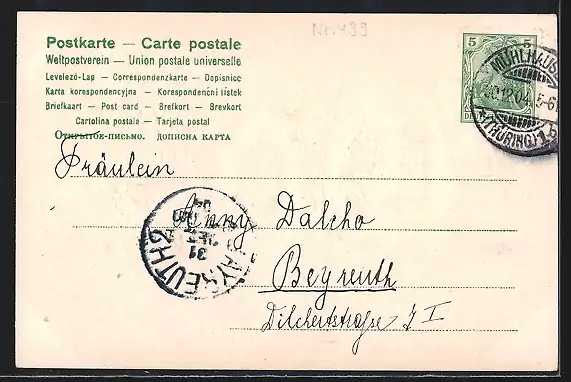 Nr. 499
Postkarte — Carte postale
Weltpostverein — Union postale universelle
Levelező-Lap — Correspondenzkarte — Dopisnice
Karta korespondencyjna — Korespondenční lístek
Briefkaart — Post card — Brefkort — Brevkort
Cartolina postale — Tarjeta postal
Открытое-письмо. ДОПИСНА КАРТА
5 5
MÜHLHAUSEN
30.12.04. 5-6
(THÜRING.) 1.b
Fräulein
Anny Dalcho
Beyreuth
Dilchertstraße 7 I
BAYREUTH 2
31
DEZ
04